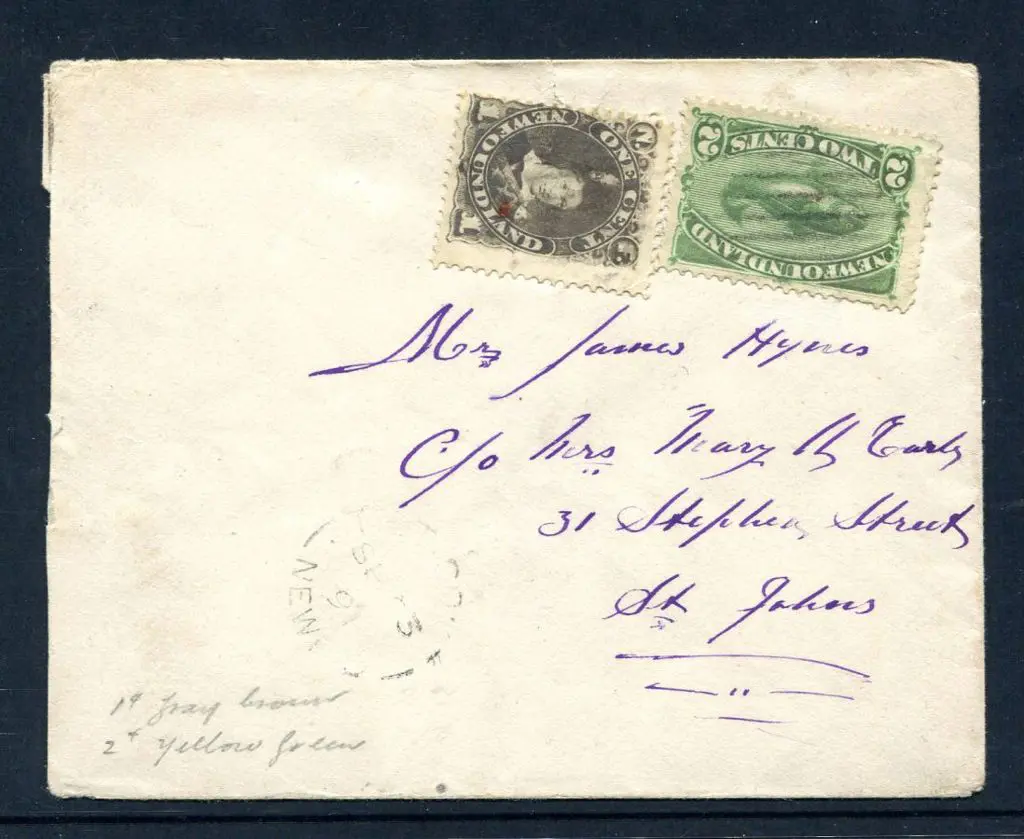 1 NEWFOUNDLAND 1
ONE CENT
2 TWO CENTS 2
NEWFOUNDLAND
Mrs James Hynes
C/o Mrs Mary Early
31 Stephen Street
St Johns
NEW
1¢ Gray brown
2¢ Yellow Green